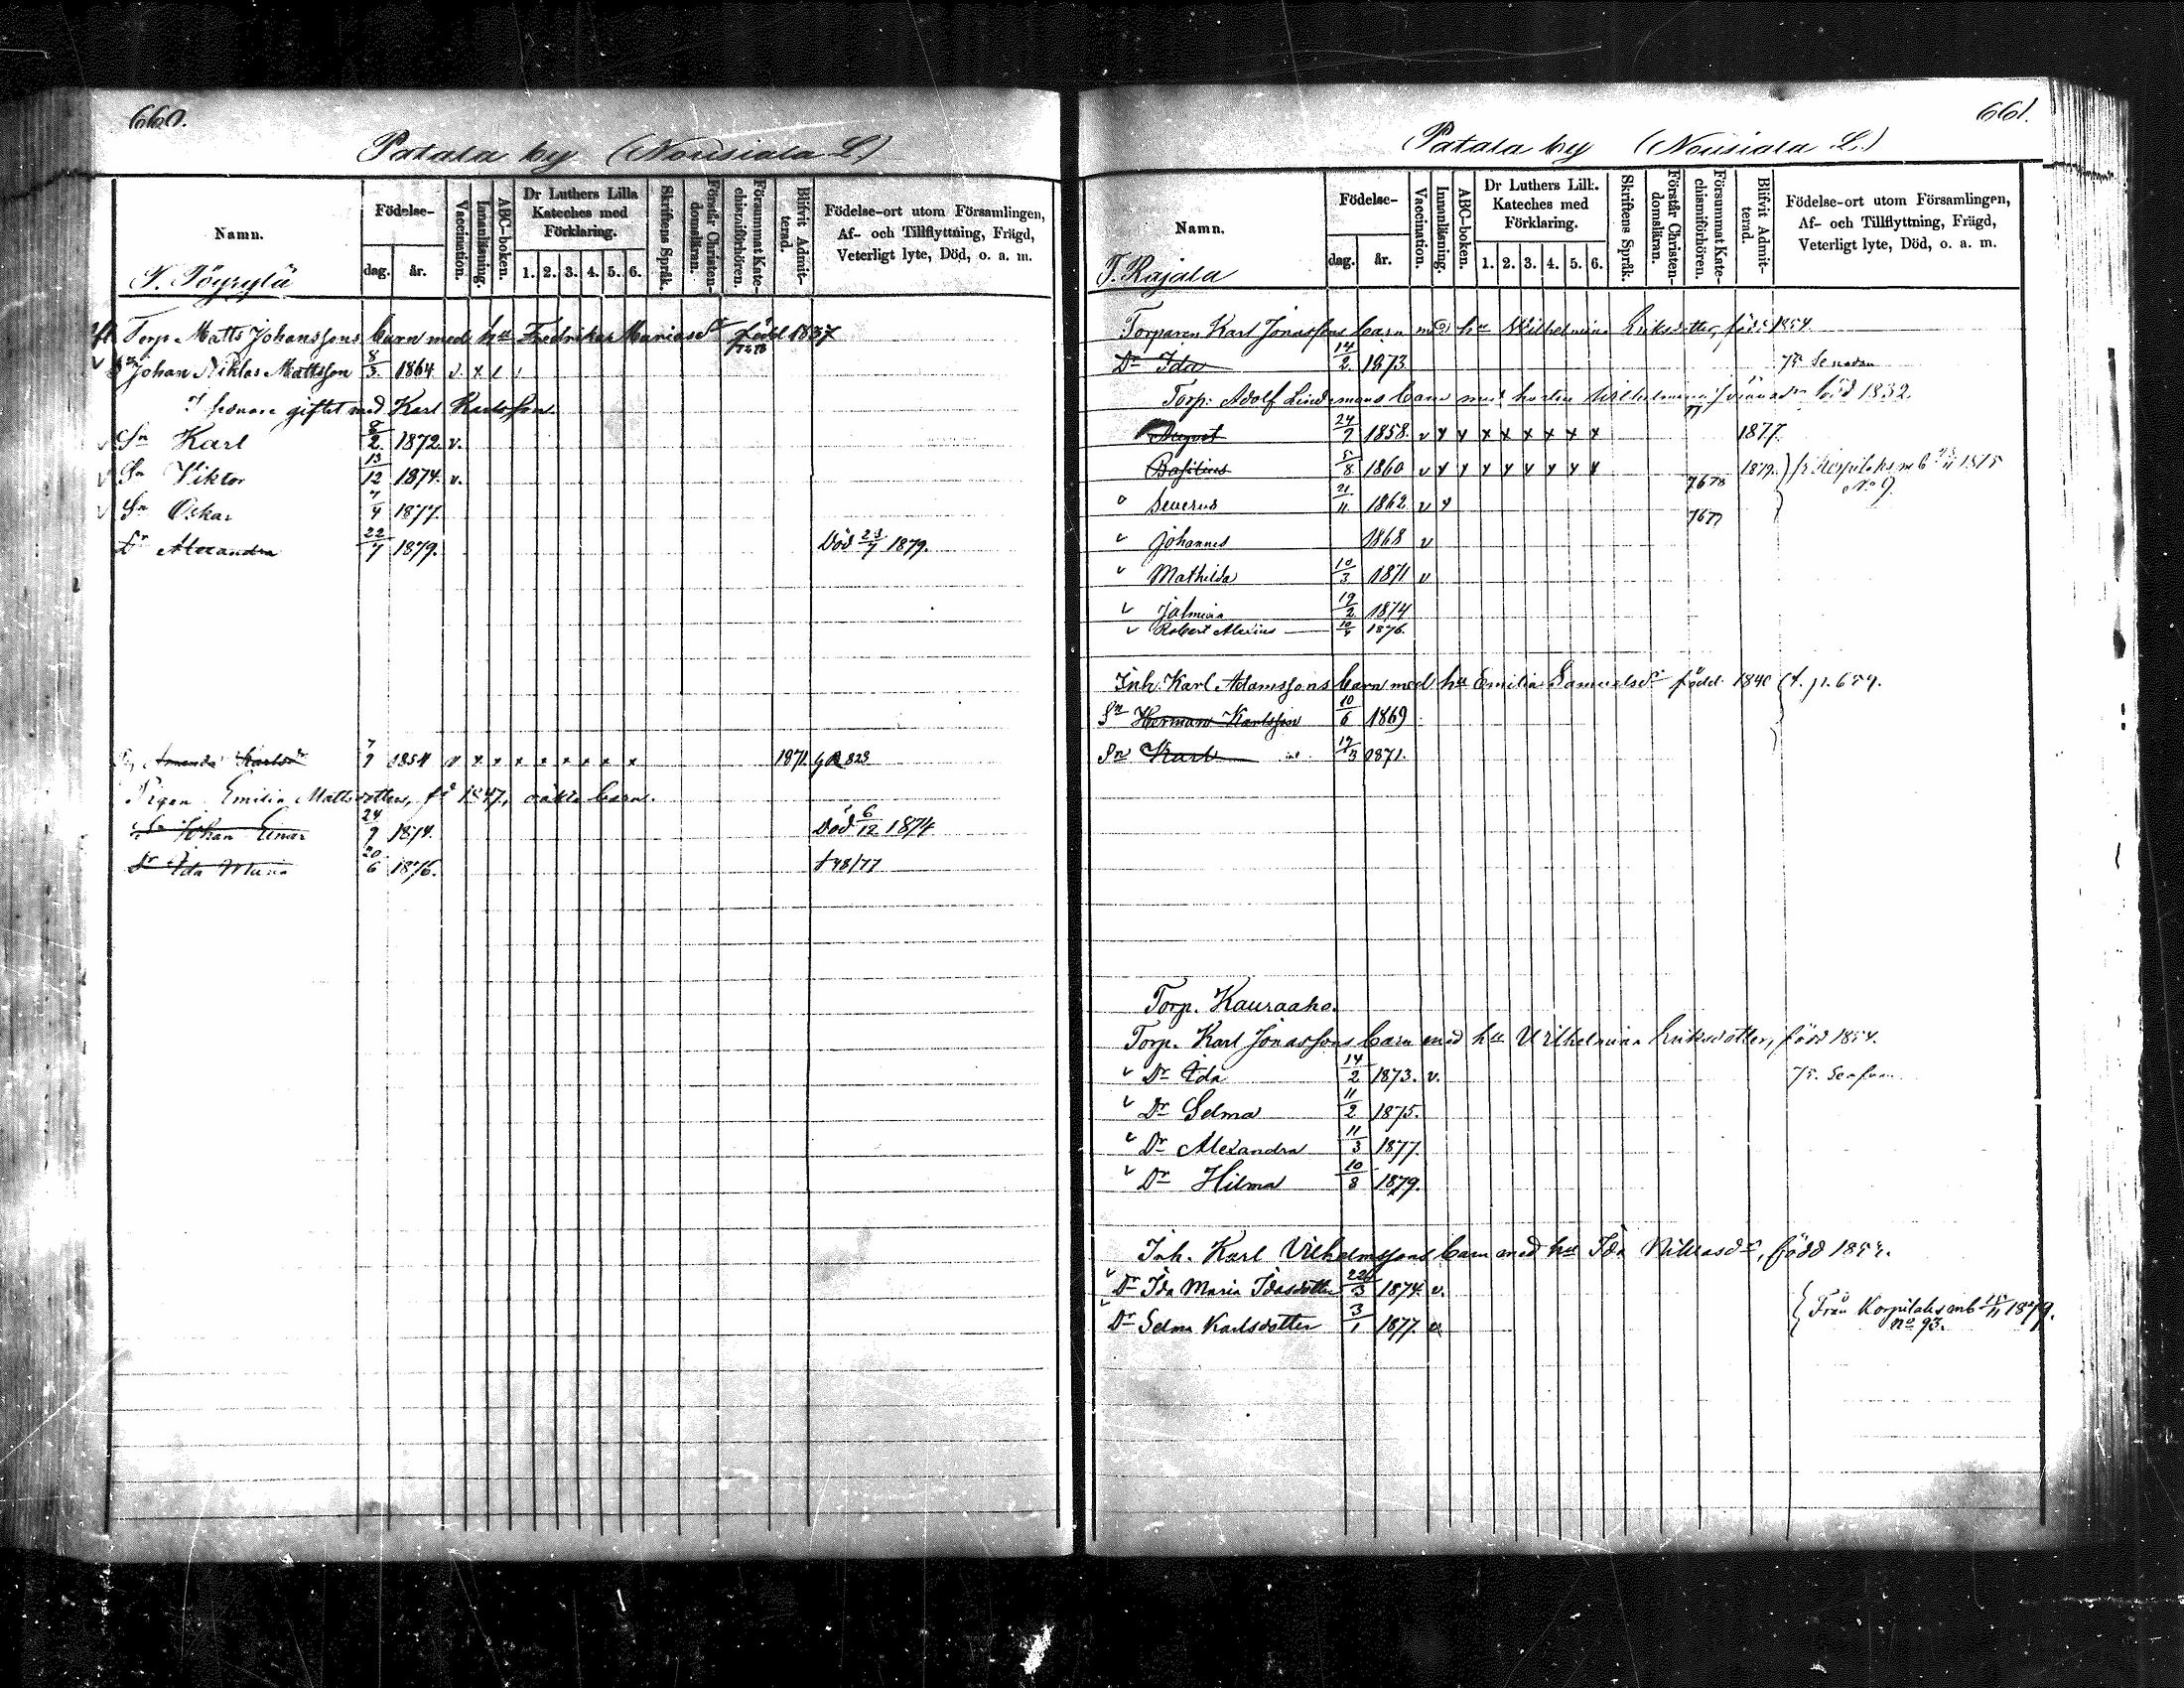 660.
Patala by (Nousiala L.)
Namn.
Födelse-
dag.
år.
Vaccination.
Innanläsning.
ABC-boken.
Dr Luthers Lilla Kateches med Förklaring.
1. 2. 3. 4. 5. 6.
Skriftens Språk.
Förstår Christen-domsläran.
Försummat Kate-chismiförhören.
Blifvit Admit-terad.
Födelse-ort utom Församlingen,
Af- och Tillflyttning, Frägd,
Veterligt lyte, Död, o. a. m.
T. Pöyrylä
Torp. Matts Johanssons barn med hu Fredrika Mariasdr född 1837
Sn Johan Niklas Mattsson 8/3 1864 v x
giftet med Karl Karlsson
v Sn Karl 8/2 1872. v.
v Sn Viktor 13/12 1874. v.
v Sn Oskar 7/4 1877.
Dr Alexandra 22/7 1879. Död 23/7 1879.
Amanda Karlsdr 7/9 1854 v x x x x x x x x 1871.
Pigan Emilia Mattsdotters, fd 1847, oäkta barn.
Sn Johan Einar 24/9 1874. Död 6/12 1874
Dr Ida Maria 20/6 1876. † 48/77
661.
Patala by (Nousiala L.)
Namn.
Födelse-
dag.
år.
Vaccination.
Innanläsning.
ABC-boken.
Dr Luthers Lill. Kateches med Förklaring.
1. 2. 3. 4. 5. 6.
Skriftens Språk.
Förstår Christen-domsläran.
Försummat Kate-chismiförhören.
Blifvit Admit-terad.
Födelse-ort utom Församlingen,
Af- och Tillflyttning, Frägd,
Veterligt lyte, Död, o. a. m.
T. Rajala
Torparen Karl Jonassons barn med hu Wilhelmina Eriksdotter, född 1854.
Dr Ida 14/2 1873.
Torp. Adolf Lindemans barn med hustru Wilhelmina född 1832.
August 24/7 1858. v x x x x x x x x 77 1877.
Basilius 5/8 1860 v x x x x x x x x 7678 1879.
Severus 21/11 1862 v x 7677
Johannes 1868 v
Mathilda 10/3 1871 v
v Jalmina 19/2 1874
v Robert Alexius 1876.
Inh. Karl Adamssons barn med hu Emilia Samuelsdr född 1840
Sn Herman Karlsson 10/6 1869
Sn Karl 1871.
Torp. Kauraaho.
Torp. Karl Jonassons barn med hu Wilhelmina Eriksdotter, född 1854.
v Dr Ida 14/2 1873. v.
v Dr Selma 11/2 1875.
v Dr Alexandra 11/3 1877.
v Dr Hilma 10/8 1879.
Inh. Karl Vilhelmssons barn med hu Ida Niklasdr, född
v Dr Ida Maria Idasdotter 1874. v.
Dr Selma Karlsdotter 3/1 1877.
Från Korpilaks mb 15/11 1879.
no 93.